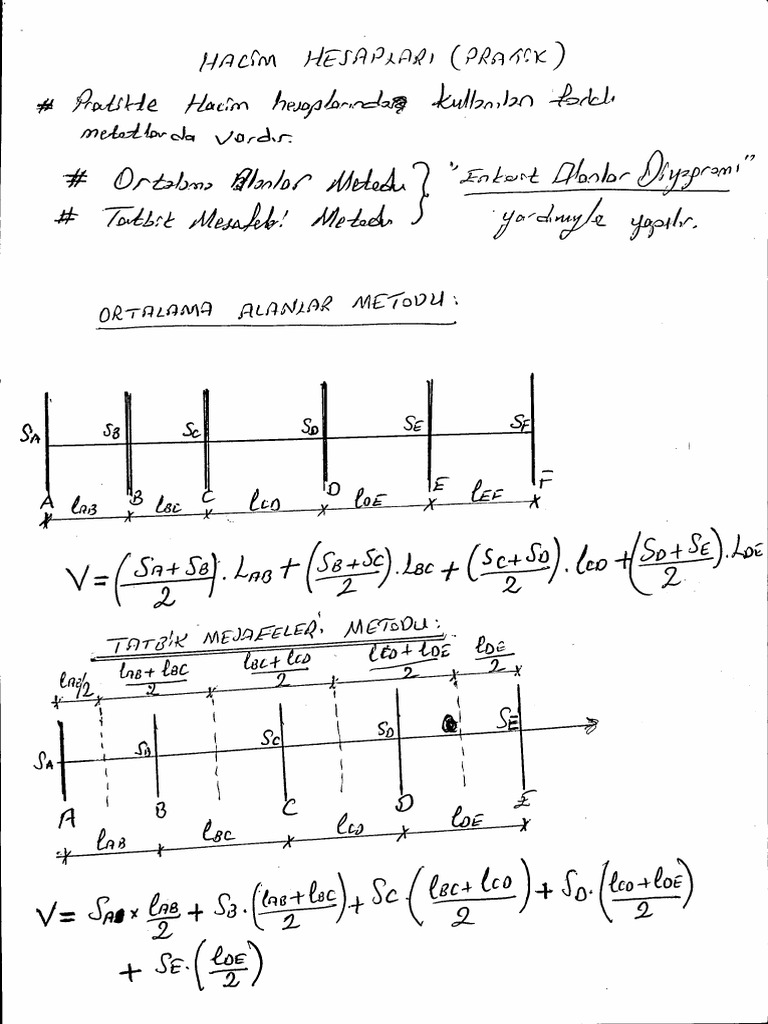 HACİM HESAPLARI (PRATİK)
# Pratikte Hacim hesaplarında kullanılan farklı
metotlarda vardır.
# Ortalama Alanlar Metodu } "Enkesit Alanlar Diyagramı"
# Tatbik Mesafeleri Metodu } yardımıyle yapılır.
ORTALAMA ALANLAR METODU:
SA SB SC SD SE SF
A B C D E F
lAB lBC lCD lDE lEF
V = (SA + SB / 2) . LAB + (SB + SC / 2) . LBC + (SC + SD / 2) . lCD + (SD + SE / 2) . LDE
TATBİK MESAFELERİ METODU:
lAB/2 lAB + lBC / 2 lBC + lCD / 2 lCD + lDE / 2 lDE / 2
SA SB SC SD SE
A B C D E
lAB lBC lCD lDE
V = SA x lAB / 2 + SB . (lAB + lBC / 2) + SC . (lBC + lCD / 2) + SD . (lCD + lDE / 2)
+ SE . (lDE / 2)